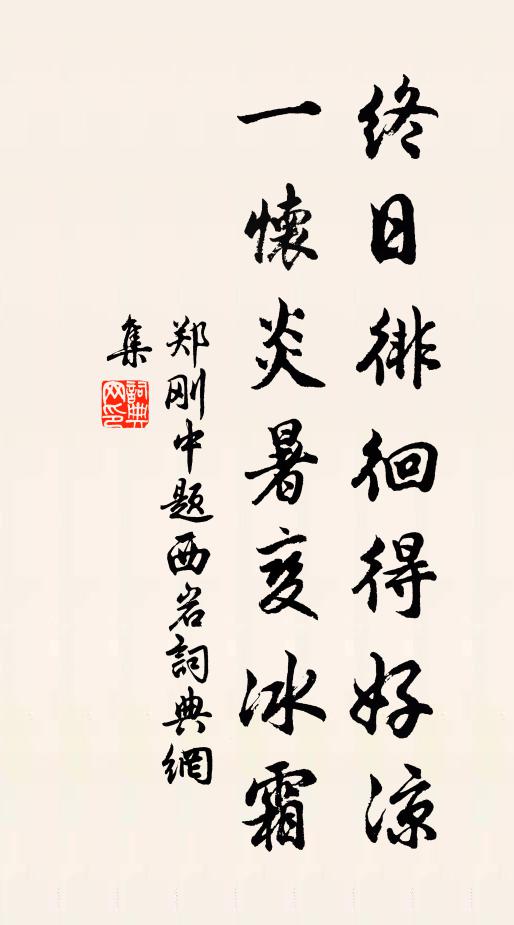 终日徘徊得好凉
一懷炎暑变冰霜
郑刚中题西岩詞典網
集
詞典
网印